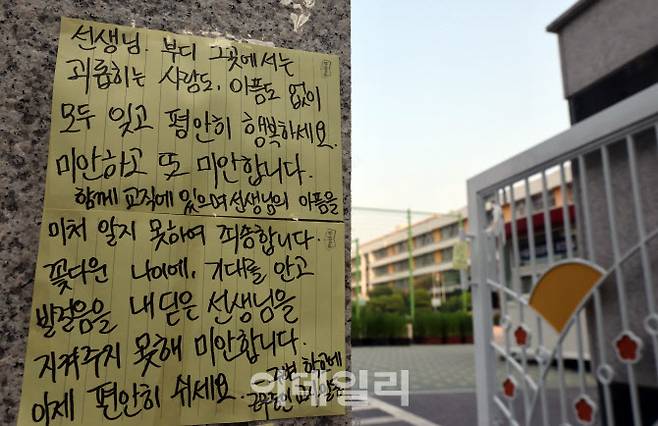 선생님. 부디 그곳에서는
괴롭히는 사람도, 아픔도 없이
모두 잊고 평안히 행복하세요.
미안하고 또 미안합니다.
함께 교직에 있으며 선생님의 아픔을
미처 알지 못하여 죄송합니다.
꽃다운 나이에, 기대를 안고
발걸음을 내딛은 선생님을
지켜주지 못해 미안합니다.
이제 편안히 쉬세요.
학교에
이데일리